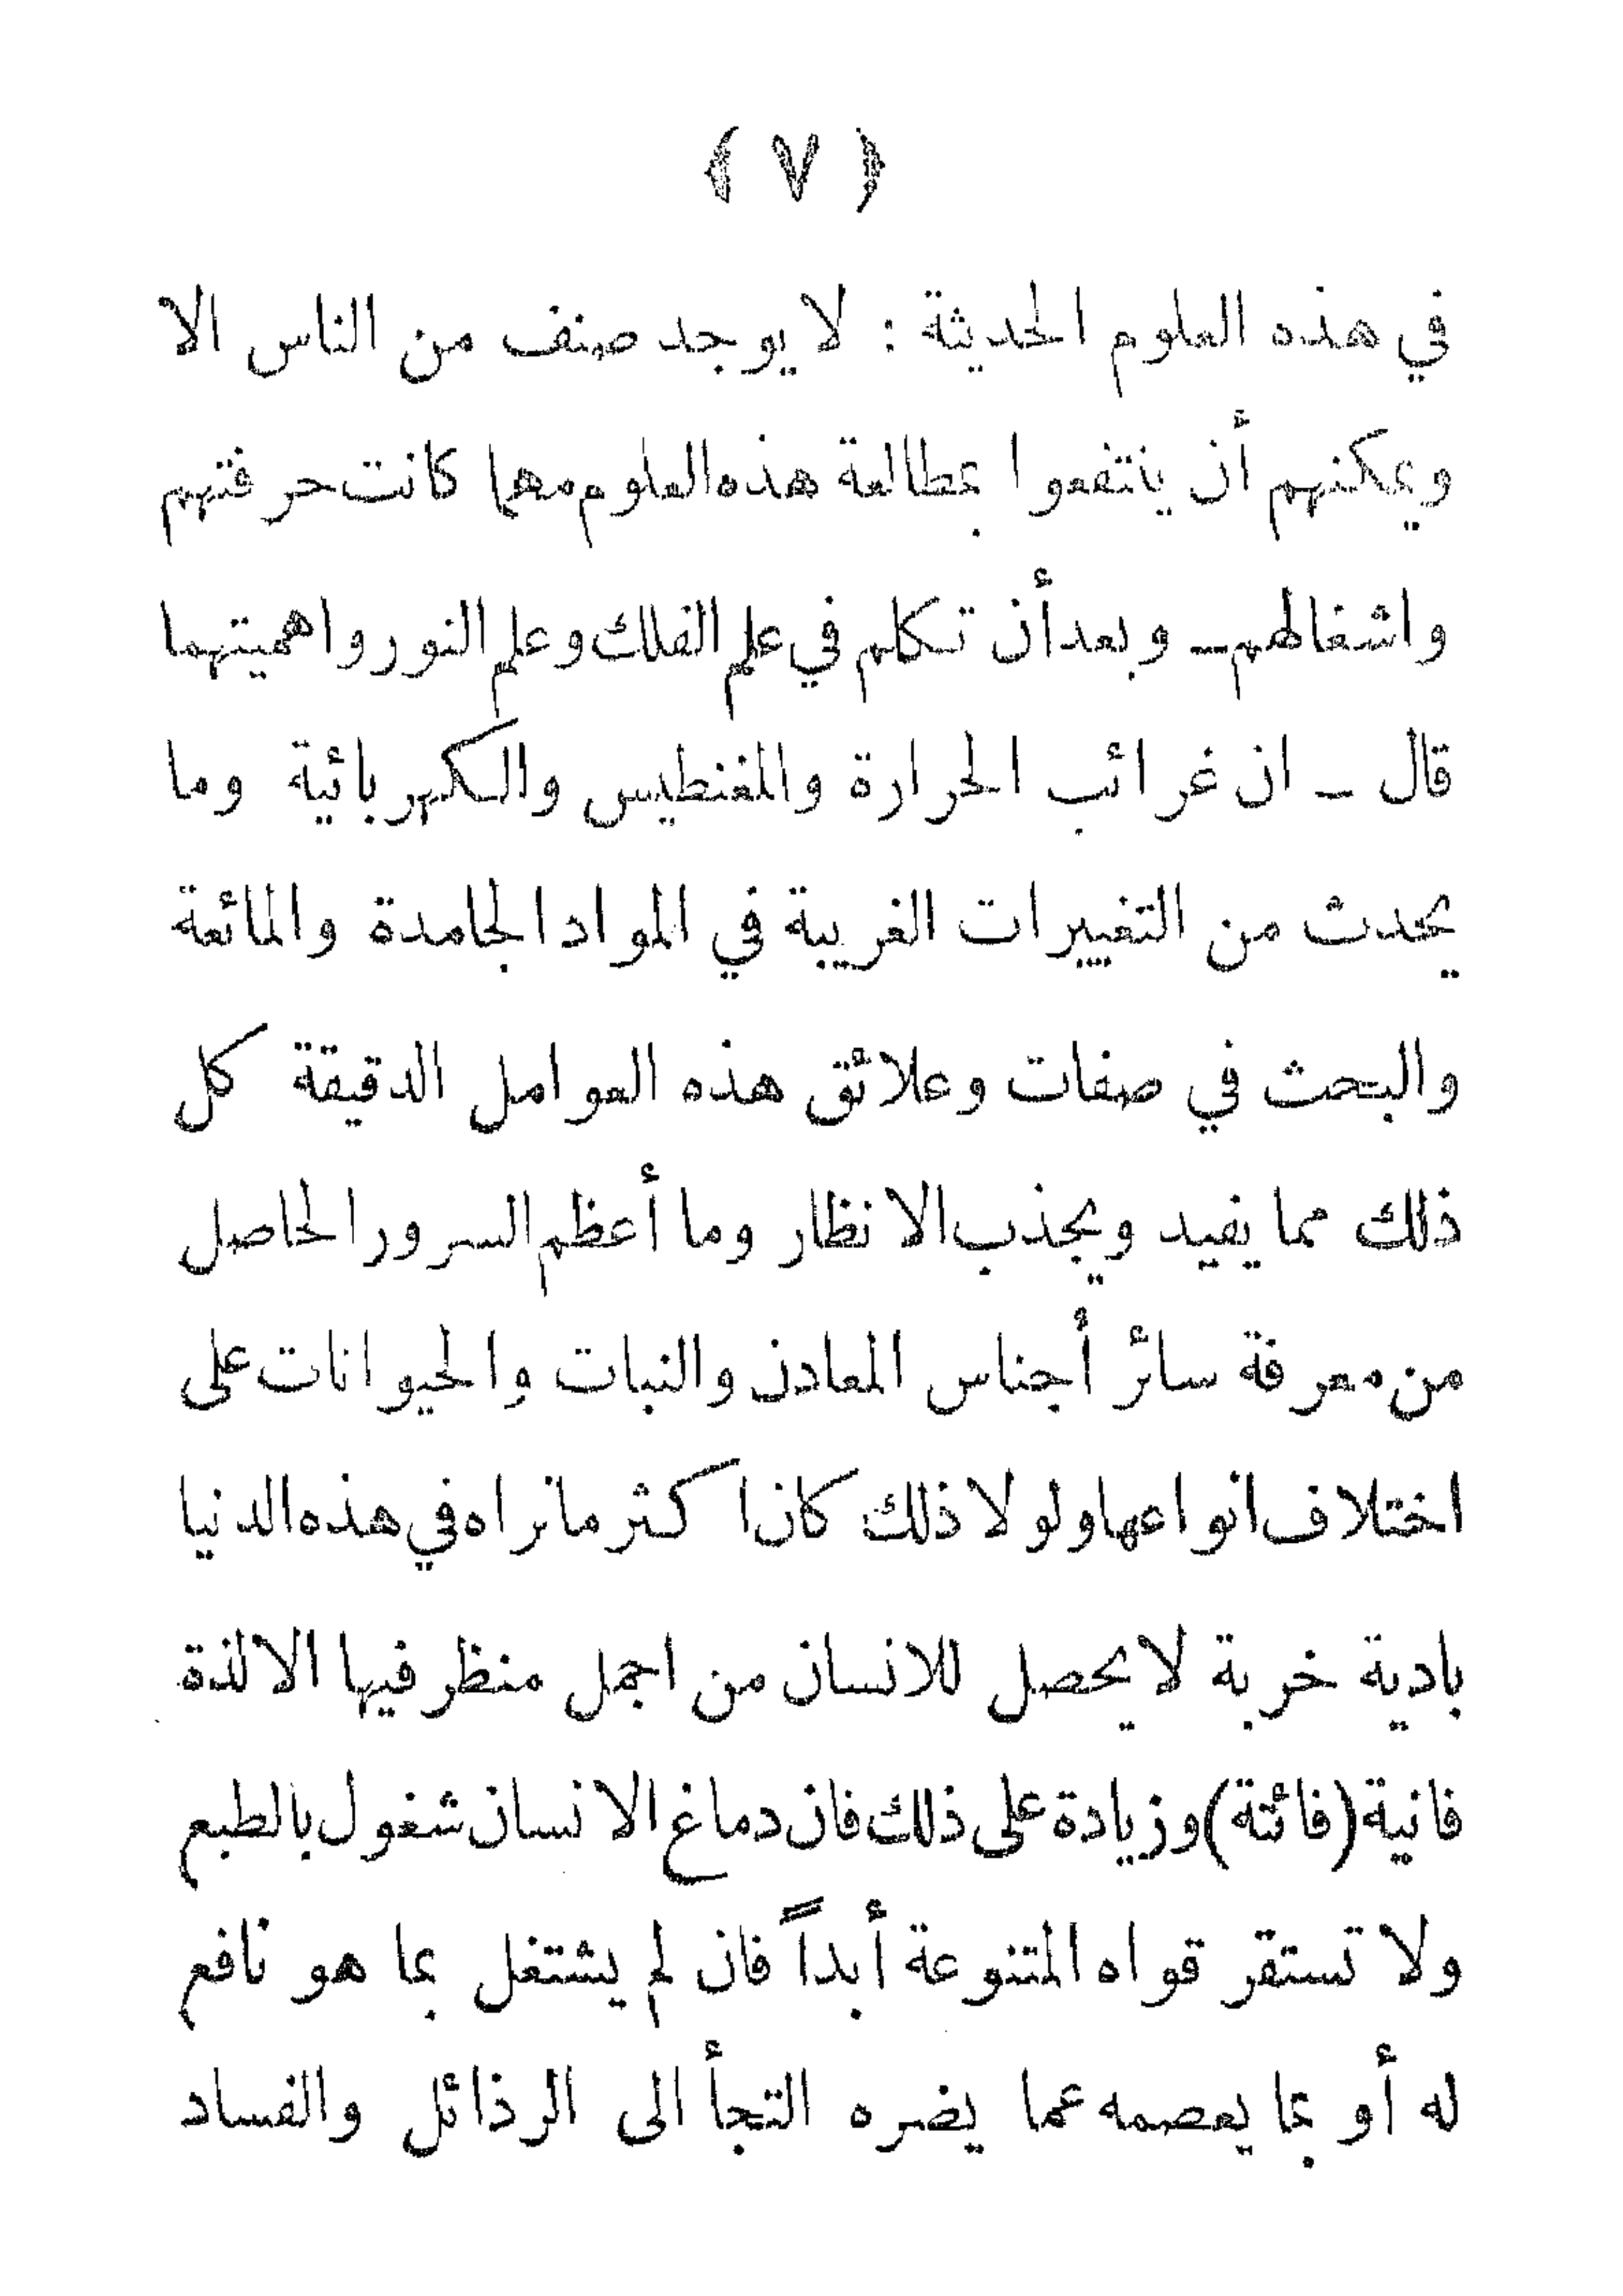 ﴿ ٧ ﴾
في هذه العلوم الحديثة : لا يوجد صنف من الناس الا
ويمكنهم أن ينتفعوا بمطالعة هذه العلوم مهما كانت حرفتهم
واشغالهم ــ وبعد أن تكلم في علم الفلك وعلم النور واهميتهما
قال ــ ان غرائب الحرارة والمغنطيس والكهربائية وما
يحدث من التغييرات الغريبة في المواد الجامدة والمائعة
والبحث في صفات وعلائق هذه العوامل الدقيقة كل
ذلك مما يفيد ويجذب الانظار وما أعظم السرور الحاصل
من معرفة سائر أجناس المعادن والنبات والحيوانات على
اختلاف انواعها ولولا ذلك كان اكثر ما نراه في هذه الدنيا
بادية خربة لا يحصل للانسان من اجمل منظر فيها الا لذة
فانية (فائتة) وزيادة على ذلك فان دماغ الانسان شغول بالطبع
ولا تستقر قواه المتنوعة أبداً فان لم يشتغل بما هو نافع
له أو بما يعصمه عما يضره التجأ الى الرذائل والفساد